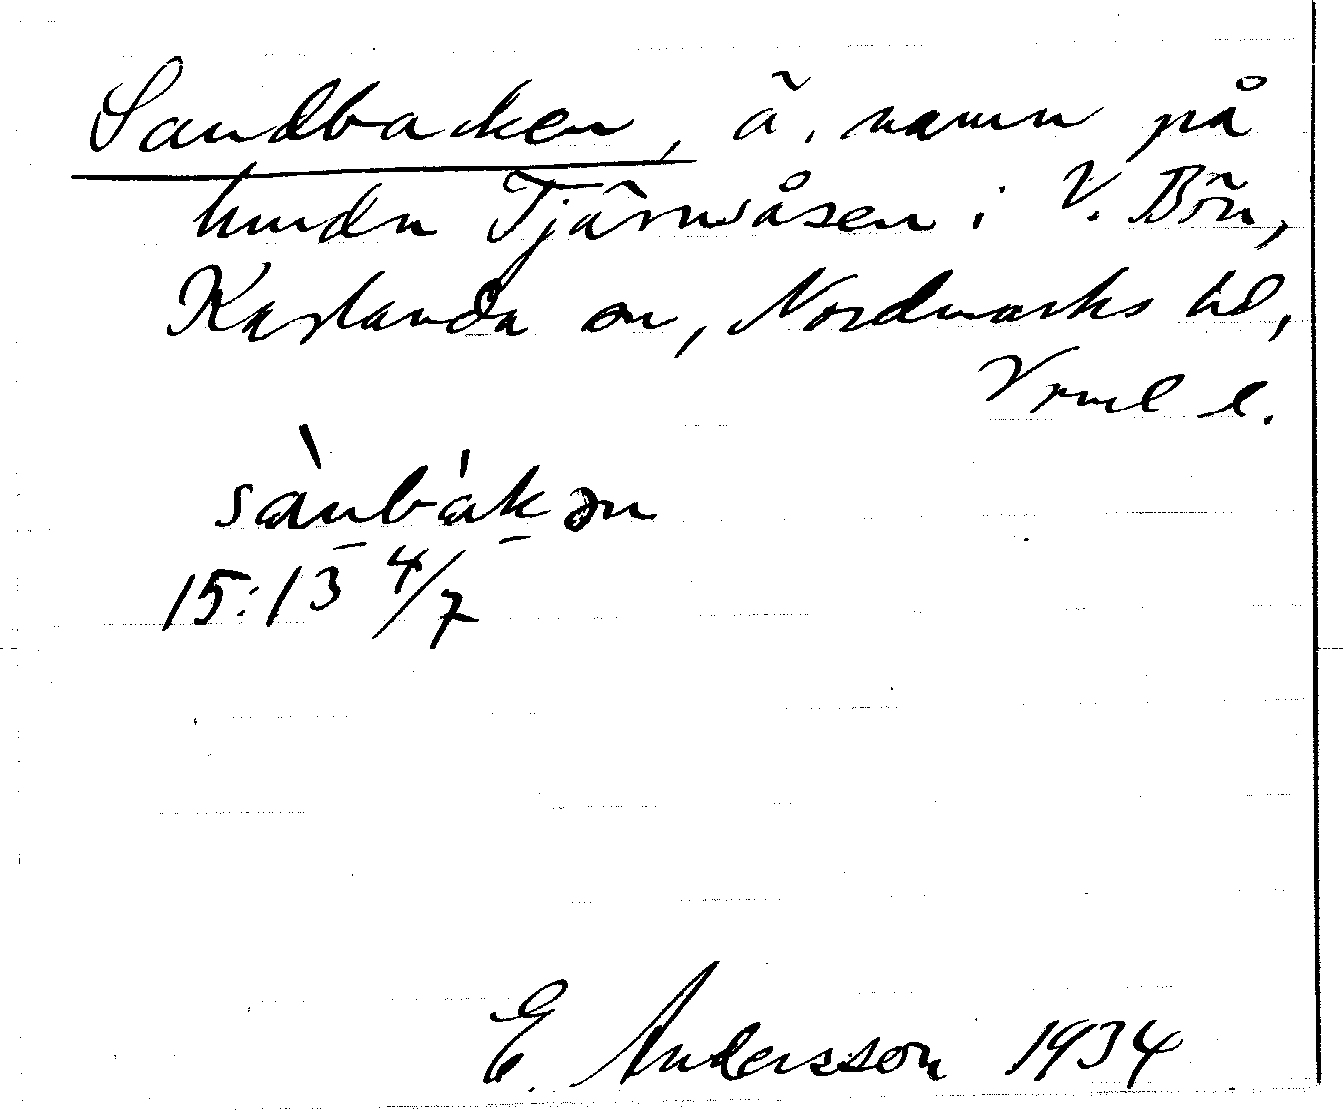 Sandbacken, ä. namn på
hmdn Tjärnsåsen i V. Bön,
Karlanda sn, Nordmarks hd,
Vrml l.
sànbák ən
15:13 4/7
E. Andersson 1934